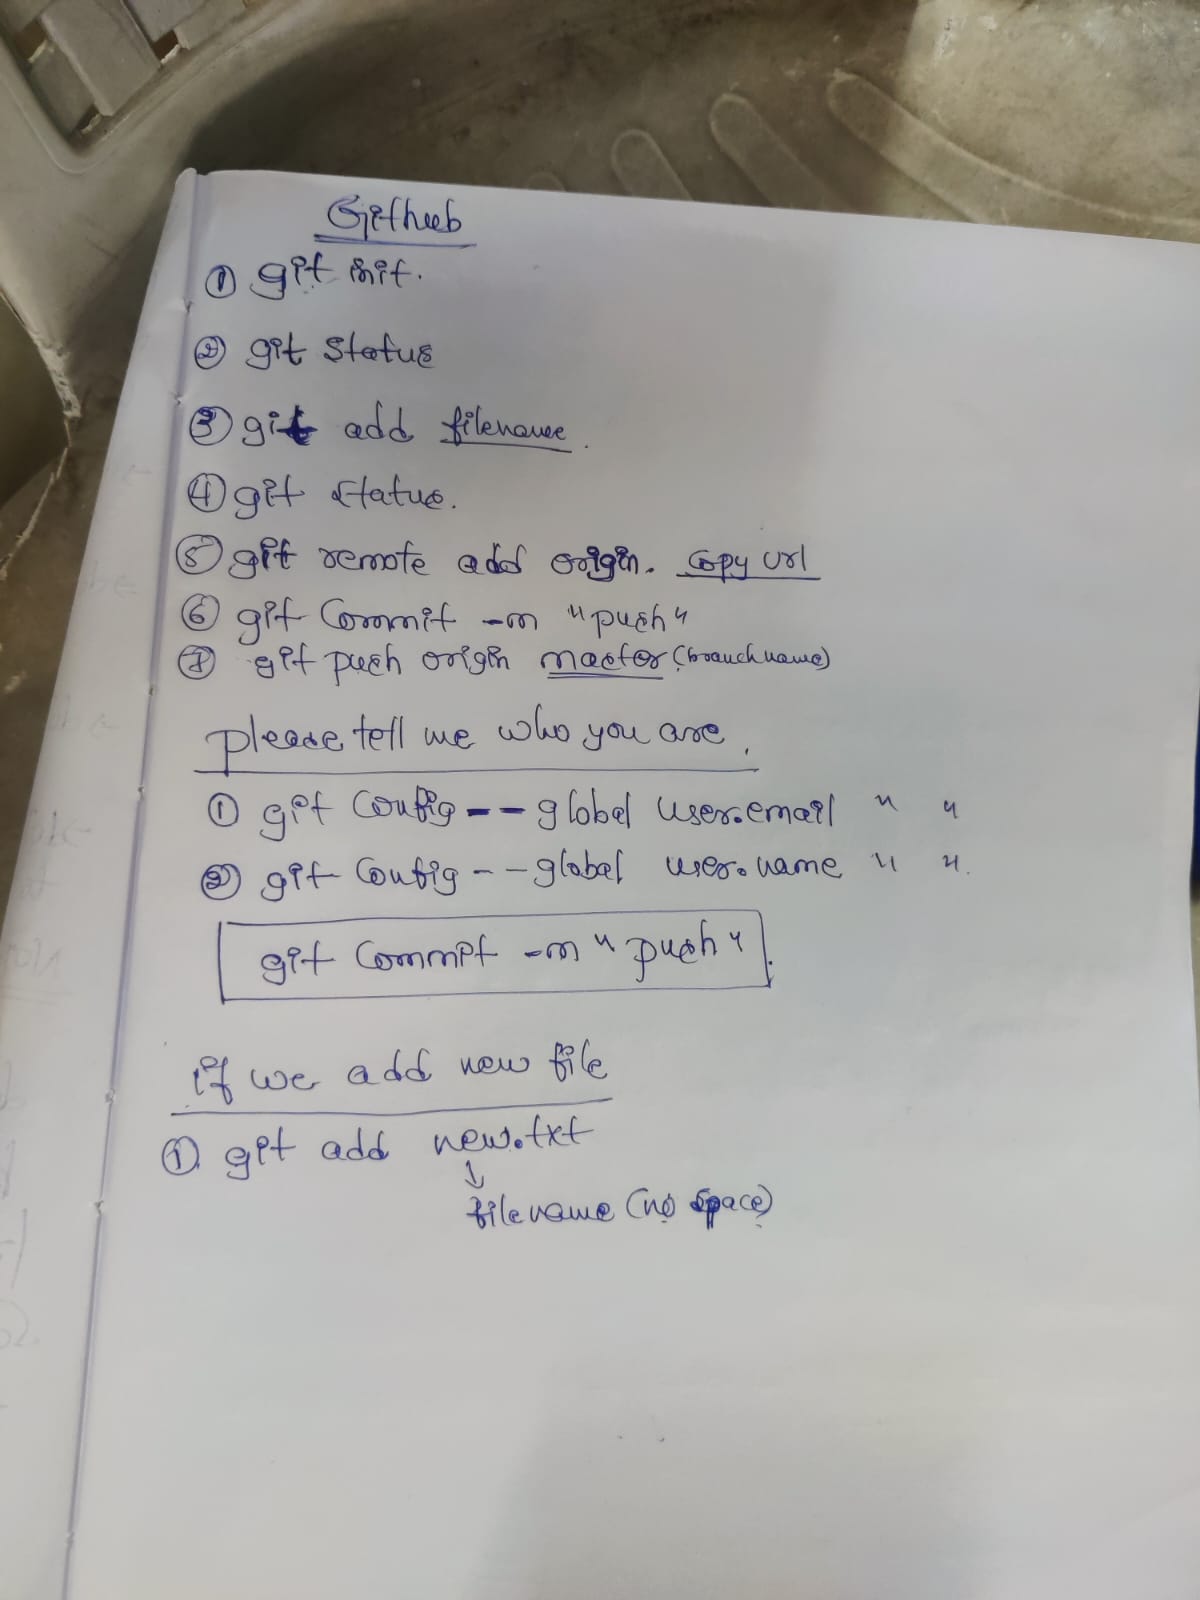 Github
① git init.
② git status
③ git add filename.
④ git status.
⑤ git remote add origin. copy url
⑥ git commit -m "push"
⑦ git push origin master (branch name)
please tell me who you are.
① git config --global user.email " "
② git config --global user.name " ".
git commit -m "push".
if we add new file
①. git add new.txt
↓
filename (no space)